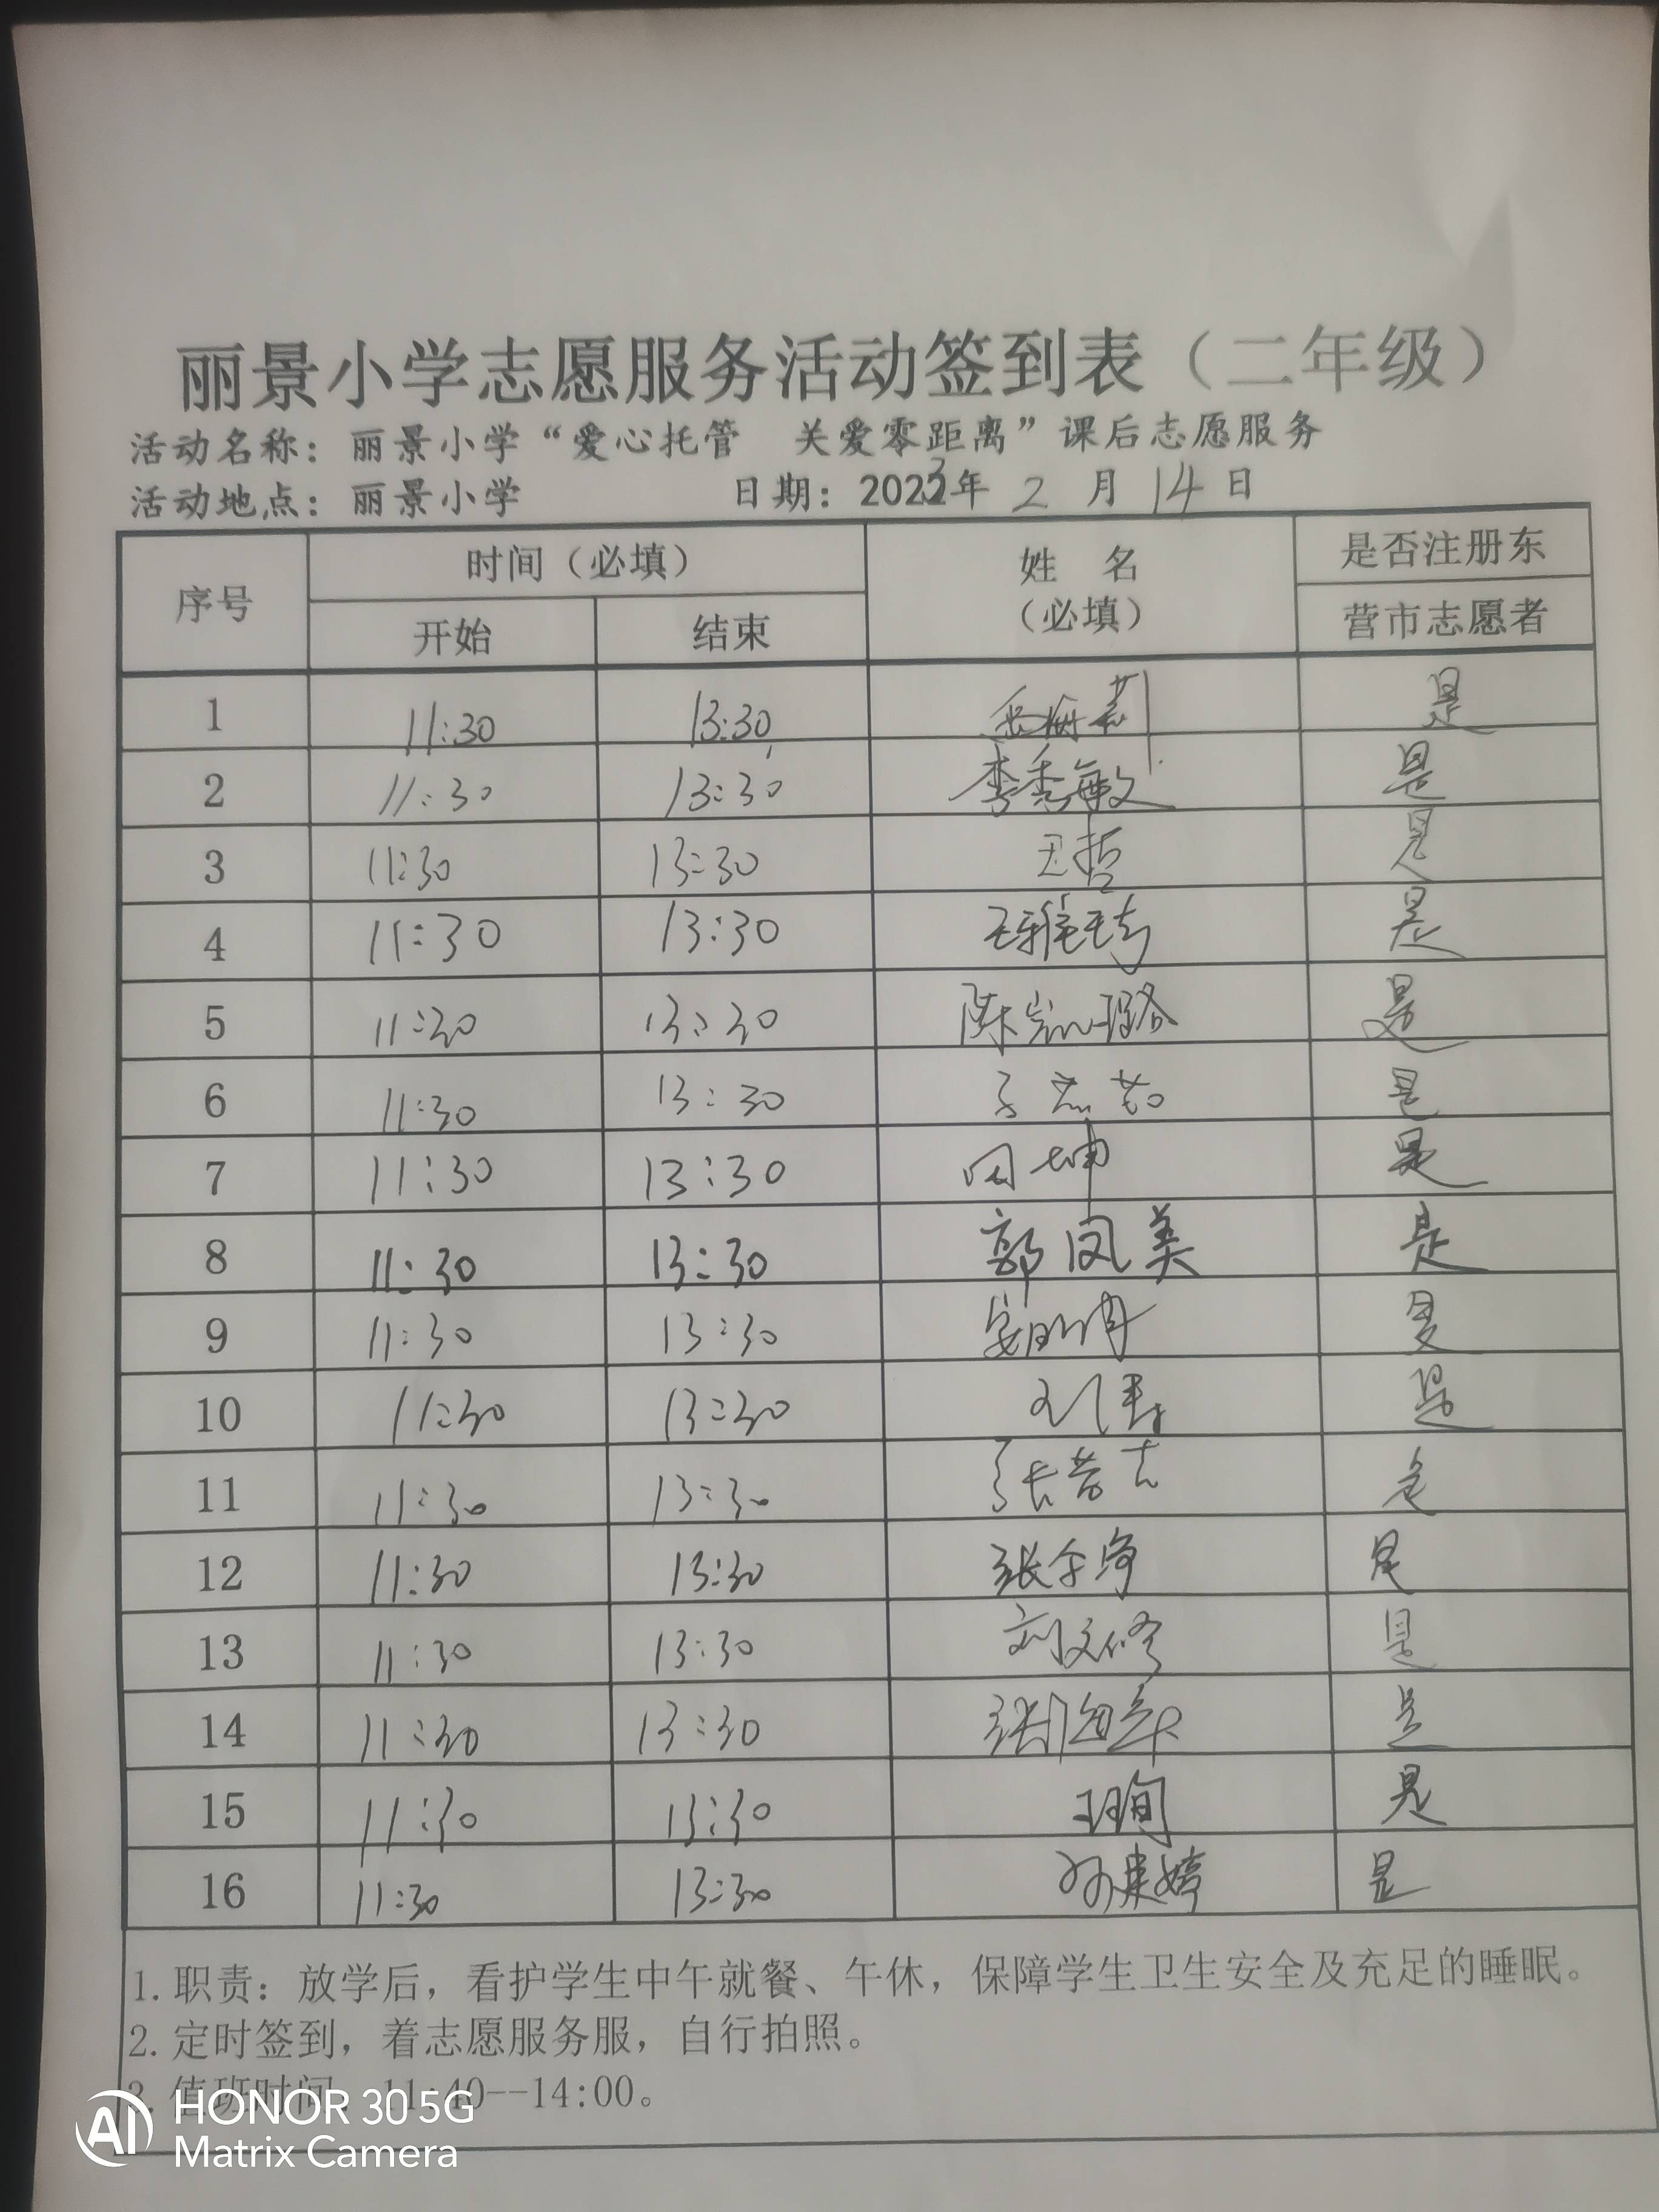 丽景小学志愿服务活动签到表（二年级）
活动名称：丽景小学“爱心托管 关爱零距离”课后志愿服务
活动地点：丽景小学 日期：2023年 2 月 14 日
序号 时间（必填） 姓 名 是否注册东
开始 结束 （必填） 营市志愿者
1 11:30 13:30 是
2 11:30 13:30 李秀敏 是
3 11:30 13:30 尹哲 是
4 11:30 13:30 是
5 11:30 13:30 陈凯璐 是
6 11:30 13:30 是
7 11:30 13:30 田坤 是
8 11:30 13:30 郭凤美 是
9 11:30 13:30 是
10 11:30 13:30 是
11 11:30 13:30 是
12 11:30 13:30 是
13 11:30 13:30 刘文修 是
14 11:30 13:30 是
15 11:30 13:30 是
16 11:30 13:30 孙建婷 是
1.职责：放学后，看护学生中午就餐、午休，保障学生卫生安全及充足的睡眠。
2.定时签到，着志愿服务服，自行拍照。
3.值班时间：11:40--14:00。
AI HONOR 30 5G
Matrix Camera